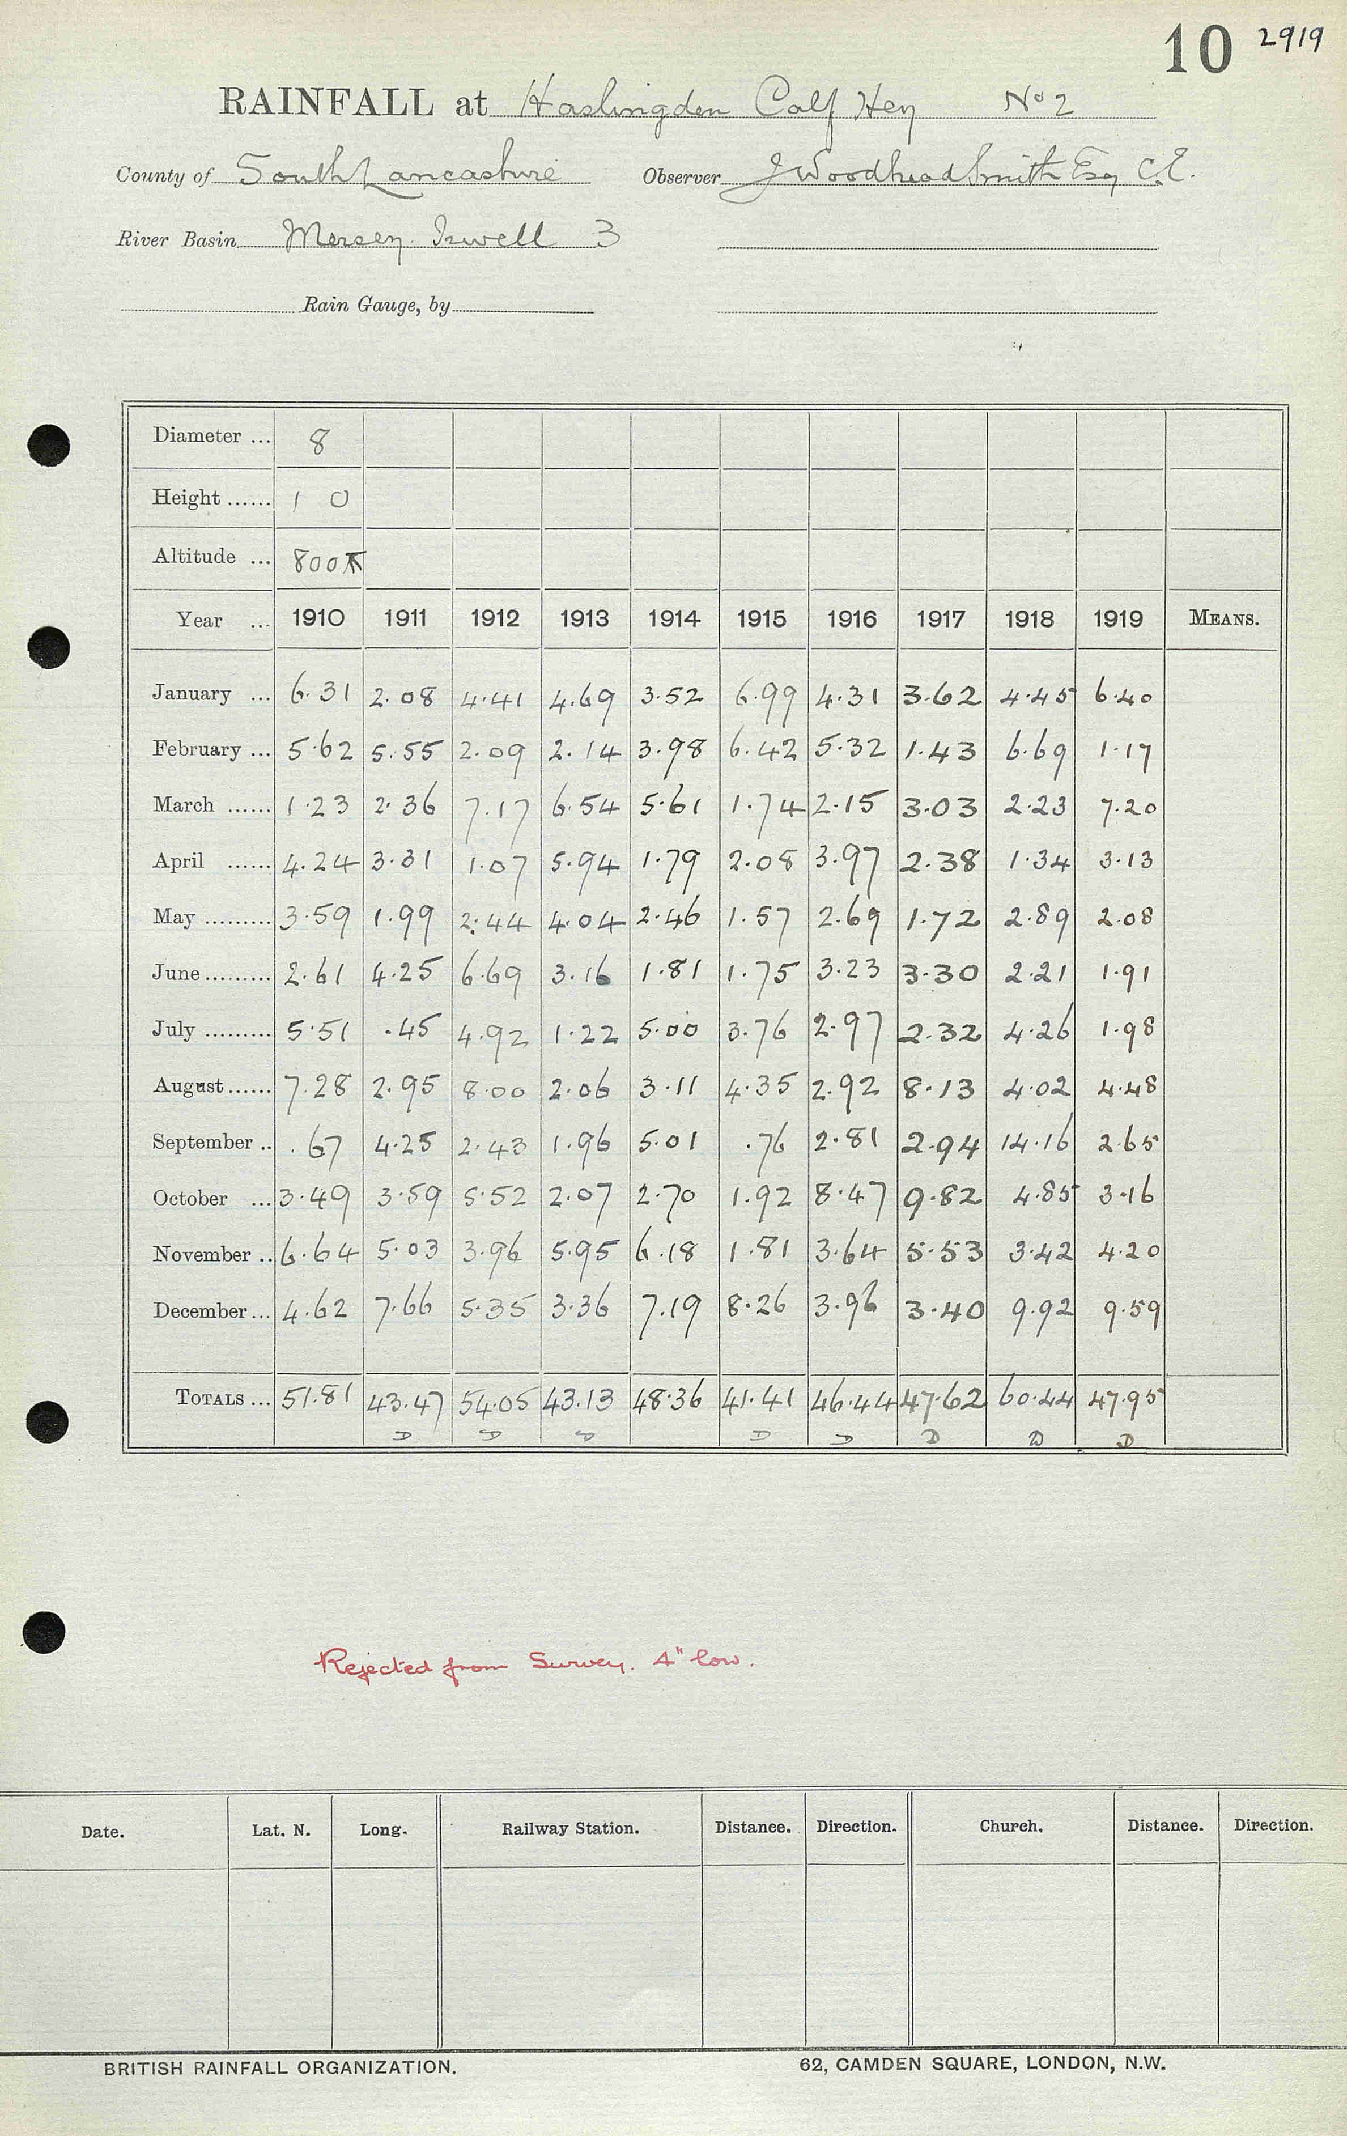 10 2919
RAINFALL at Haslingden Calf Hey No 2
County of South Lancashire Observer J Woodhead Smith Esq C.E.
River Basin Mersey. Irwell 3
Rain Gauge, by
Diameter ... 8
Height ...... 1 0
Altitude ... 800
Year ... 1910 1911 1912 1913 1914 1915 1916 1917 1918 1919 MEANS.
January ... 6.31 2.08 4.41 4.69 3.52 6.99 4.31 3.62 4.45 6.40
February ... 5.62 5.55 2.09 2.14 3.98 6.42 5.32 1.43 6.69 1.17
March ...... 1.23 2.36 7.17 6.54 5.61 1.74 2.15 3.03 2.23 7.20
April ...... 4.24 3.31 1.07 5.94 1.79 2.08 3.97 2.38 1.34 3.13
May ......... 3.59 1.99 2.44 4.04 2.46 1.57 2.69 1.72 2.89 2.08
June ......... 2.61 4.25 6.69 3.16 1.81 1.75 3.23 3.30 2.21 1.91
July ......... 5.51 .45 4.92 1.22 5.00 3.76 2.97 2.32 4.26 1.98
August ...... 7.28 2.95 8.00 2.06 3.11 4.35 2.92 8.13 4.02 4.48
September .. .67 4.25 2.43 1.96 5.01 .76 2.81 2.94 14.16 2.65
October ... 3.49 3.59 5.52 2.07 2.70 1.92 8.47 9.82 4.85 3.16
November .. 6.64 5.03 3.96 5.95 6.18 1.81 3.64 5.53 3.42 4.20
December ... 4.62 7.66 5.35 3.36 7.19 8.26 3.96 3.40 9.92 9.59
TOTALS ... 51.81 43.47 54.05 43.13 48.36 41.41 46.44 47.62 60.44 47.95
D D D D D D D D
Rejected from Survey. 4" low.
Date. Lat. N. Long. Railway Station. Distance. Direction. Church. Distance. Direction.
BRITISH RAINFALL ORGANIZATION. 62, CAMDEN SQUARE, LONDON, N.W.